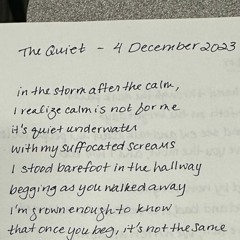 The Quiet - 4 December 2023
in the storm after the calm,
I realize calm is not for me
it's quiet underwater
with my suffocated screams
I stood barefoot in the hallway
begging as you walked away
I'm grown enough to know
that once you beg, it's not the same